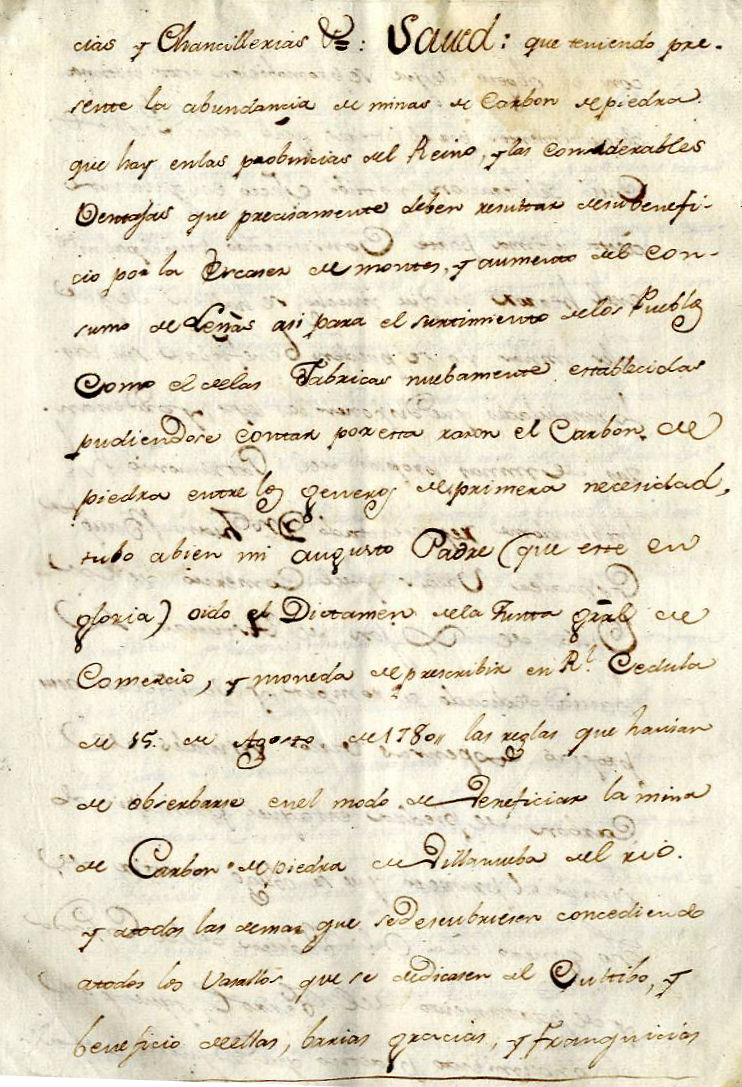 cias y Chancillerias &=: Saved: que teniendo pre-
sente la abundancia de minas de Carbon de piedra
que hay enlas probincias del Reino, y las considerables
Ventajas que precisamente deben resultar desu benefi-
cio por la Escases de montes, y aumento del Con-
sumo de Leñas asi para el surtimiento delos Pueblos
Como el delas Fabricas nuebamente establecidas
pudiendose contar por esta razon el Carbon de
piedra entre los generos de primera necesidad,
tubo abien mi augusto Padre (que este en
gloria) oido el Dictamen dela Junta gral de
Comercio, y moneda de prescribir en Rl Cedula
de 15 de Agosto de 1780,, las reglas que havian
de obserbarse enel modo de Veneficiar la mina
de Carbon de piedra de Villanueba del rio.
y atodas las demas que se descubriesen concediendo
atodos los Vasallos que se dedicasen al Cultibo, y
beneficio deellas, barias gracias, y franquicias